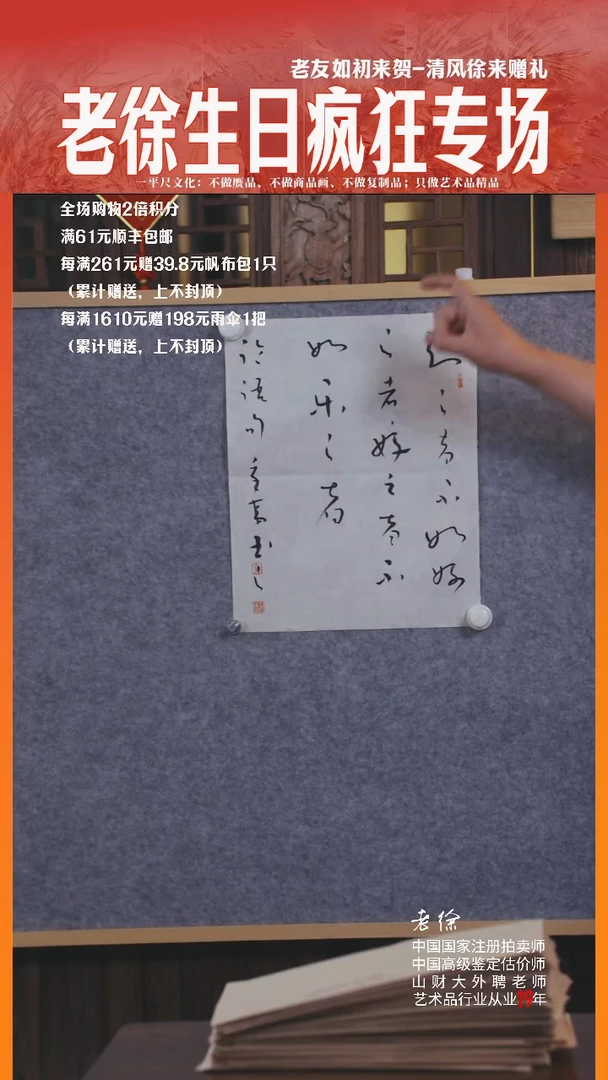 老友如初来贺-清风徐来赠礼
老徐生日疯狂专场
一平尺文化：不做赝品、不做商品画、不做复制品；只做艺术品精品
全场购物2倍积分
满61元顺丰包邮
每满261元赠39.8元帆布包1只
（累计赠送，上不封顶）
每满1610元赠198元雨伞1把
（累计赠送，上不封顶）
知之者不如好
之者好之者不
如乐之者
论语句
老徐
中国国家注册拍卖师
中国高级鉴定估价师
山财大外聘老师
艺术品行业从业年